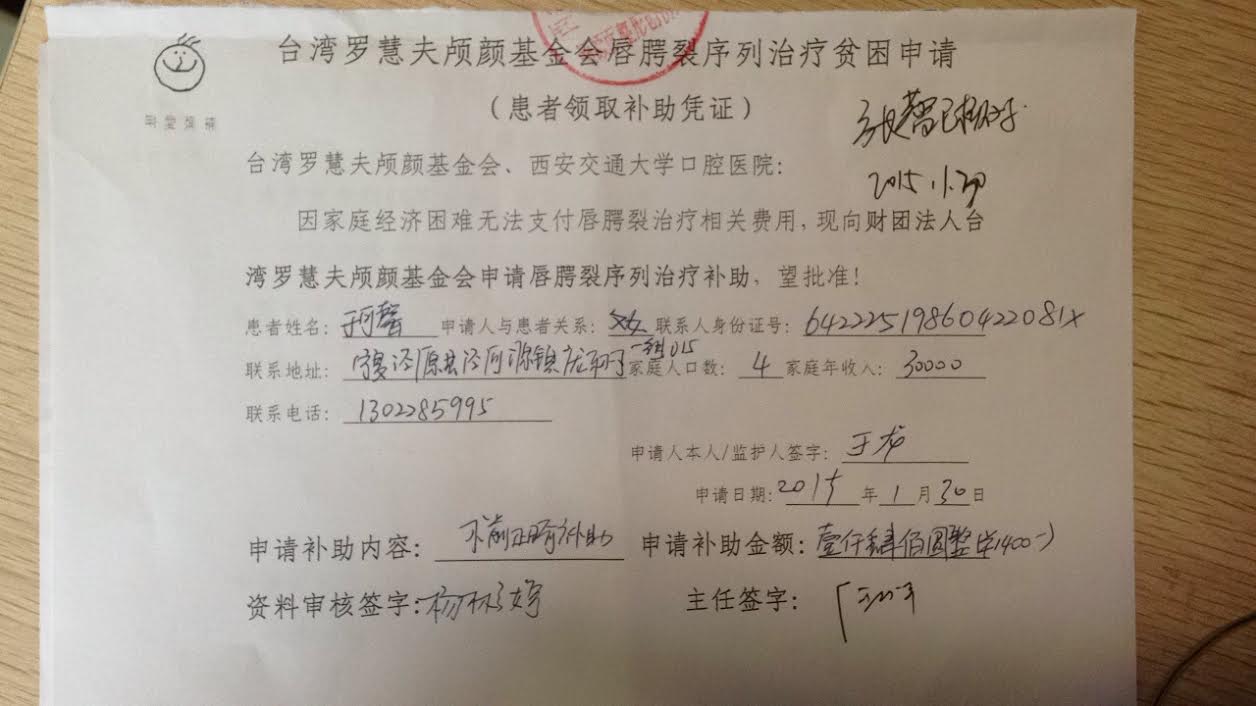 台湾罗慧夫颅颜基金会唇腭裂序列治疗贫困申请
（患者领取补助凭证）
2015.1.30
台湾罗慧夫颅颜基金会、西安交通大学口腔医院：
因家庭经济困难无法支付唇腭裂治疗相关费用，现向财团法人台
湾罗慧夫颅颜基金会申请唇腭裂序列治疗补助，望批准！
患者姓名： 申请人与患者关系：父女 联系人身份证号：64222519860422081X
联系地址：宁夏泾原县泾河源镇 家庭人口数：4 家庭年收入：30000
联系电话：1302285995
申请人本人/监护人签字：于龙
申请日期：2015年1月30日
申请补助内容：术前正畸补助 申请补助金额：壹仟肆佰圆整（1400-）
资料审核签字：杨林婷 主任签字：